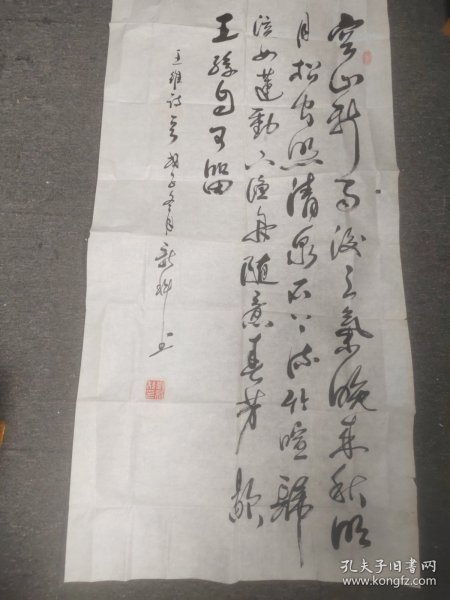 空山新雨後天氣晚来秋明
月松间照清泉石上流竹喧歸
浣女蓮動下漁舟随意春芳歇
王孫自可留
王維诗 冬月 新科
孔夫子旧书网
www.kongfz.com